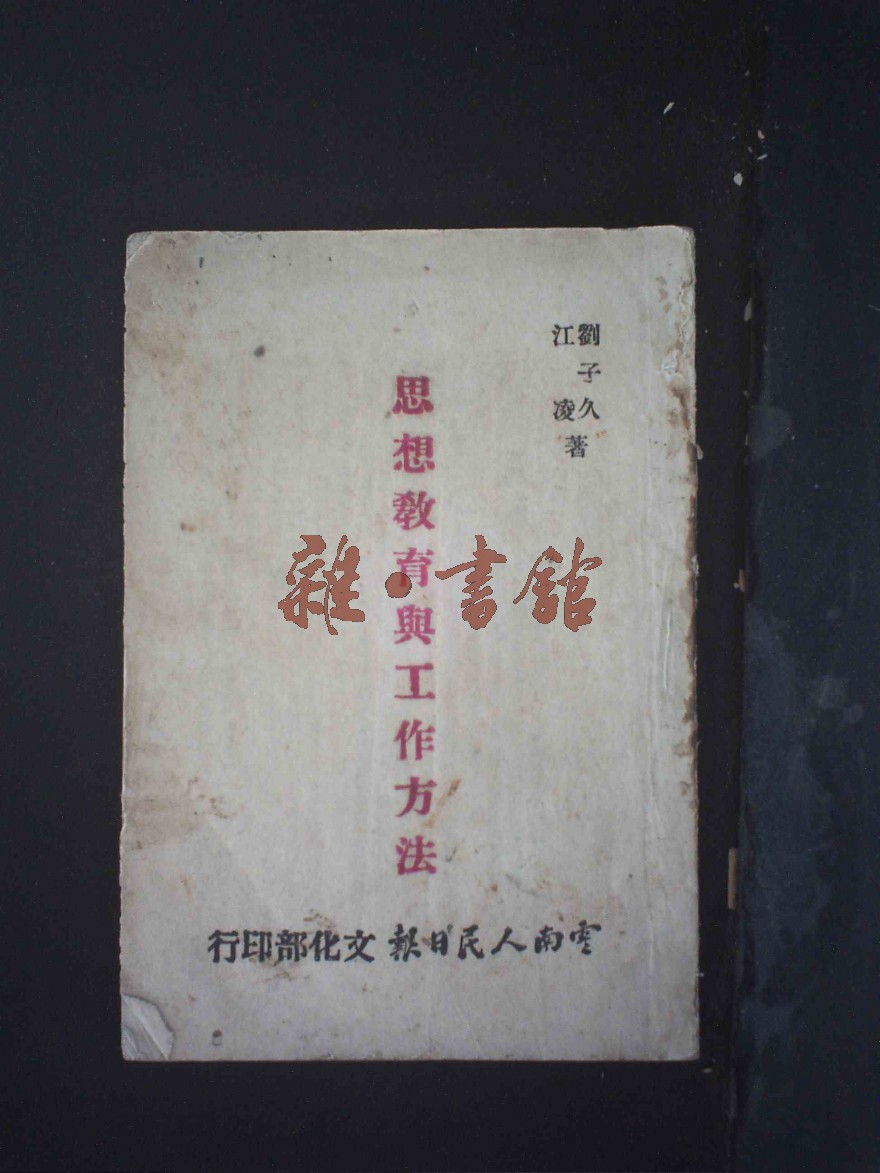 劉子久
江凌
著
思想教育與工作方法
雜·書館
雲南人民日報文化部印行